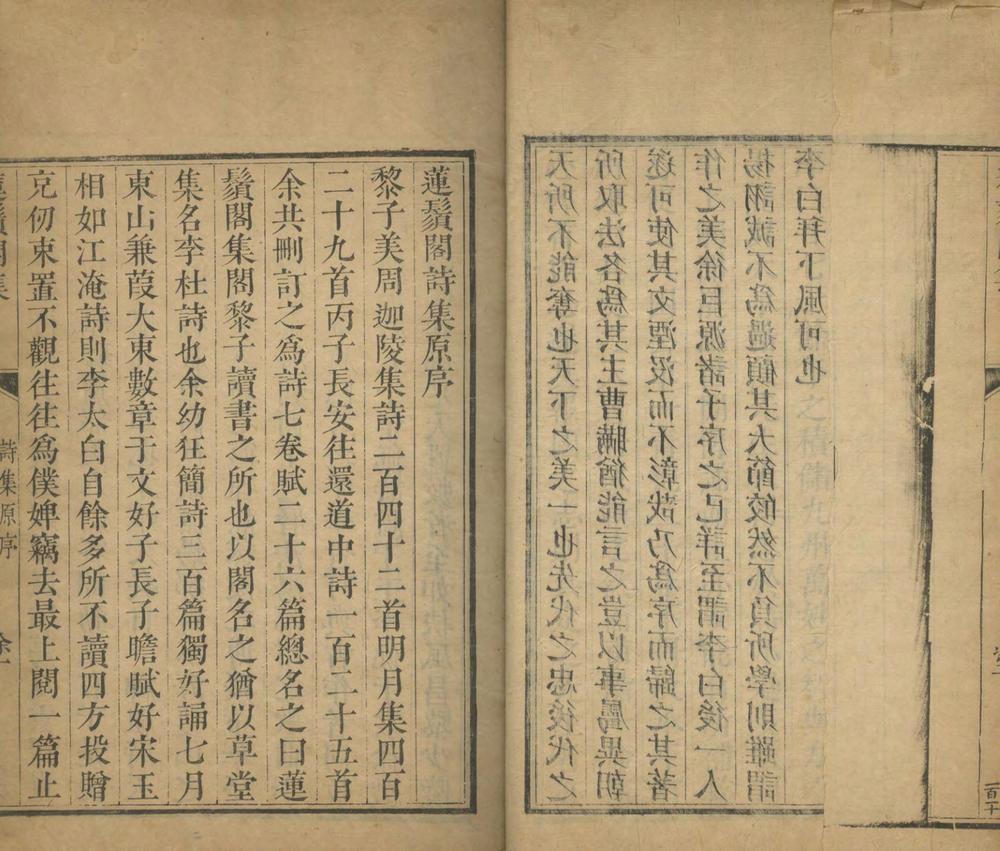 天所不能奪也天下之美一也先代之忠後代之
所取法各爲其主曹瞞猶能言之豈以事屬異朝
遂可使其文湮沒而不彰哉乃爲序而歸之其著
作之美徐巨源諸子序之已詳至謂李白後一人
揚詡誠不爲過顧其大節皎然不負所學則雖謂
李白拜下風可也
蓮鬚閣詩集原序
黎子美周迦陵集詩二百四十二首明月集四百
二十九首丙子長安往還道中詩一百二十五首
余共刪訂之爲詩七卷賦二十六篇總名之曰蓮
鬚閣集閣黎子讀書之所也以閣名之猶以草堂
集名李杜詩也余幼狂簡詩三百篇獨好誦七月
東山兼葭大東數章于文好子長子瞻賦好宋玉
相如江淹詩則李太白自餘多所不讀四方投贈
克仞束置不觀往往爲僕婢竊去最上閱一篇止
蓮鬚閣集
詩集原序